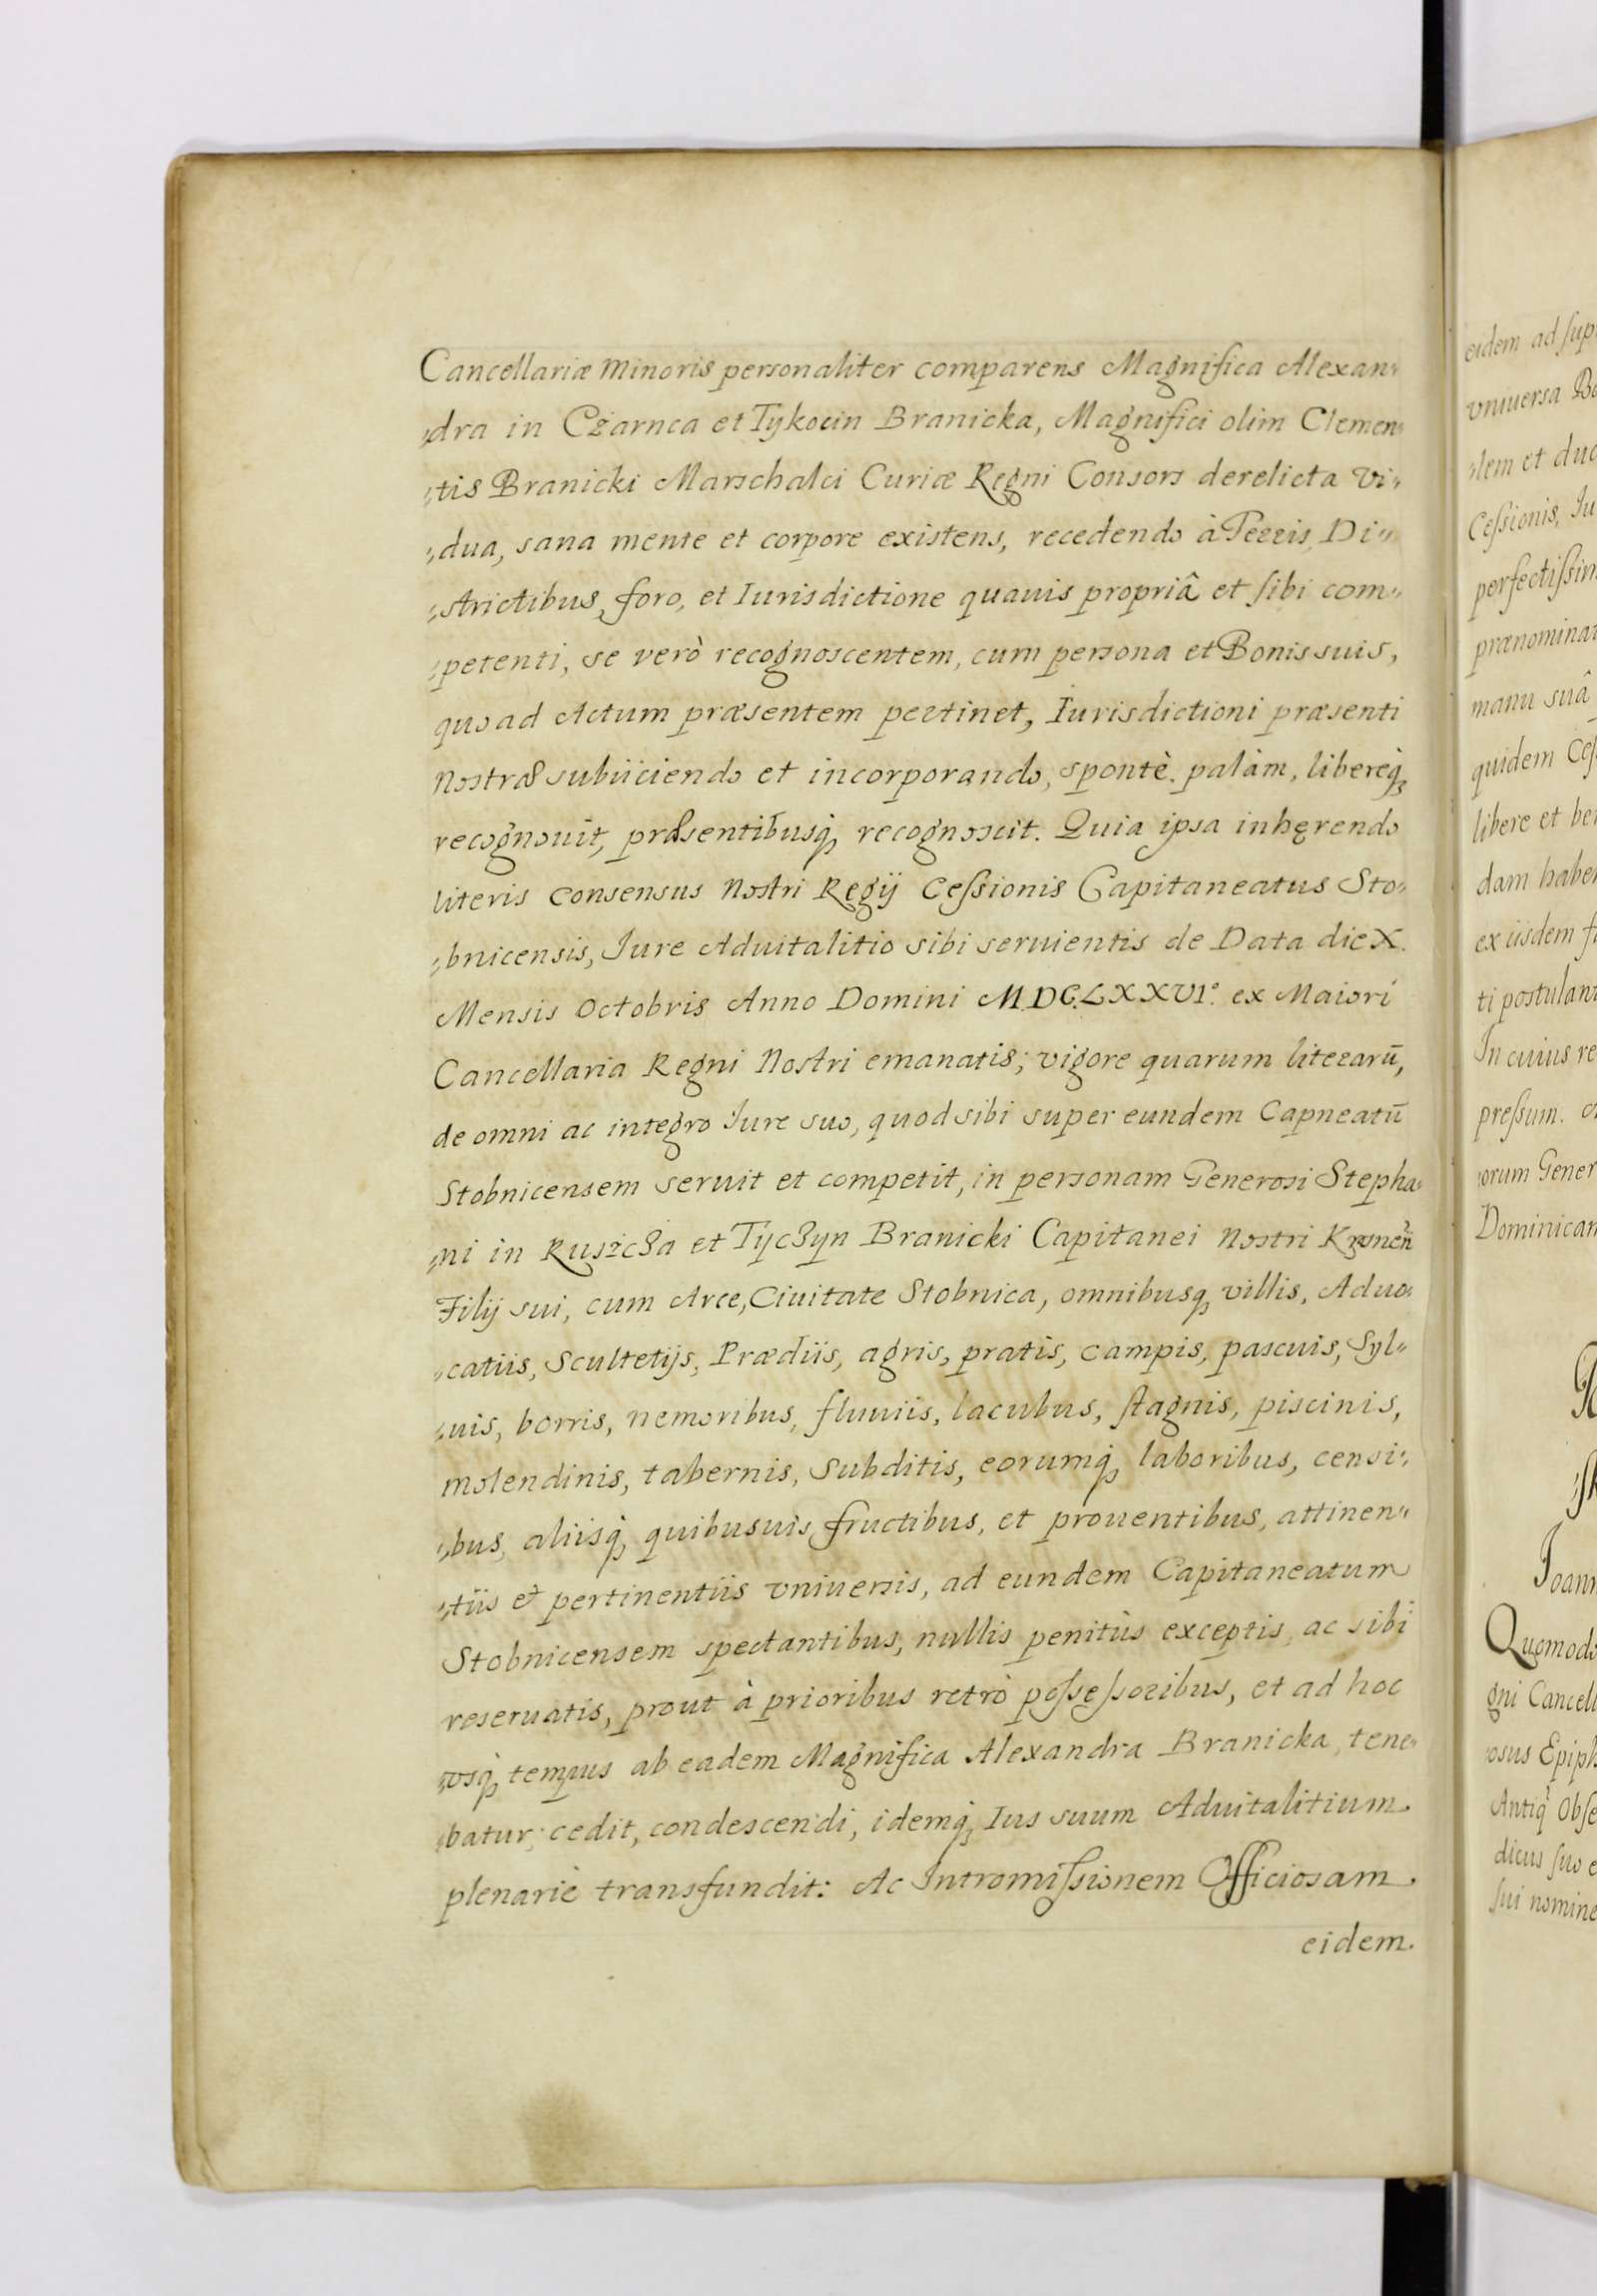 Cancellariæ Minoris personaliter comparens Magnifica Alexan⸗
⸗dra in Czarnca et Tykocin Branicka, Magnifici olim Clemen⸗
⸗tis Branicki Marschalci Curiæ Regni Consors derelicta Vi⸗
⸗dua, sana mente et corpore existens, recedendo à Terris, Di⸗
⸗strictibus, foro, et Iurisdictione quauis propriâ et sibi com⸗
⸗petenti, se verò recognoscentem, cum persona et Bonis suis,
quo ad Actum præsentem pertinet, Iurisdictioni præsenti
Nostræ subiiciendo et incorporando, spontè. palàm, libereq́ꝫ
recognouit, præsentibusq́ꝫ recognoscit. Quia ipsa inhęrendo
literis Consensus Nostri Regij Cessionis Capitaneatus Sto⸗
⸗bnicensis, Iure Aduitalitio sibi seruientis de Data die X.
Mensis Octobris Anno Domini M.DC.LXXVIº. ex Maiori
Cancellaria Regni Nostri emanatis; vigore quarum literarū,
de omni ac integro Iure suo, quod sibi super eundem Capneatū
Stobnicensem seruit et competit, in personam Generosi Stepha⸗
⸗ni in Ruszcza et Tyczyn Branicki Capitanei Nostri
Filij sui, cum Arce, Ciuitate Stobnica, omnibusqꝫ villis, Aduo⸗
⸗catiis, Scultetijs, Prædiis, agris, pratis, campis, pascuis, Syl⸗
⸗uis, borris, nemoribus, fluuiis, lacubus, stagnis, piscinis,
molendinis, tabernis, Subditis, eorumq́ꝫ laboribus, censi⸗
⸗bus, aliisq́ꝫ quibusuis fructibus, et prouentibus, attinen⸗
⸗tiis et pertinentiis vniuersis, ad eundem Capitaneatum
Stobnicensem spectantibus, nullis penitùs exceptis, ac sibi
reseruatis, prout à prioribus retrò possessoribus, et ad hoc
vsq́ꝫ tempus ab eadem Magnifica Alexandra Branicka, tene⸗
⸗batur; cedit, condescendi, idemq́ꝫ Ius suum Aduitalitium
plenariè transfundit: Ac Intromissionem Officiosam
eidem.
eidem ad sup
vniuersa Bo
⸗lem et duc
Cessionis, Iu
perfectissim
prænominat
manu suâ
quidem Ces
libere et be
dam habe
ex iisdem f
ti postulan
In cuius re
pressum.
orum Gener
Dominican
Ioann
Quomodo
gni Cancell
osus Epiph
Antiq́ Obse
dicus suo e
sui nomine